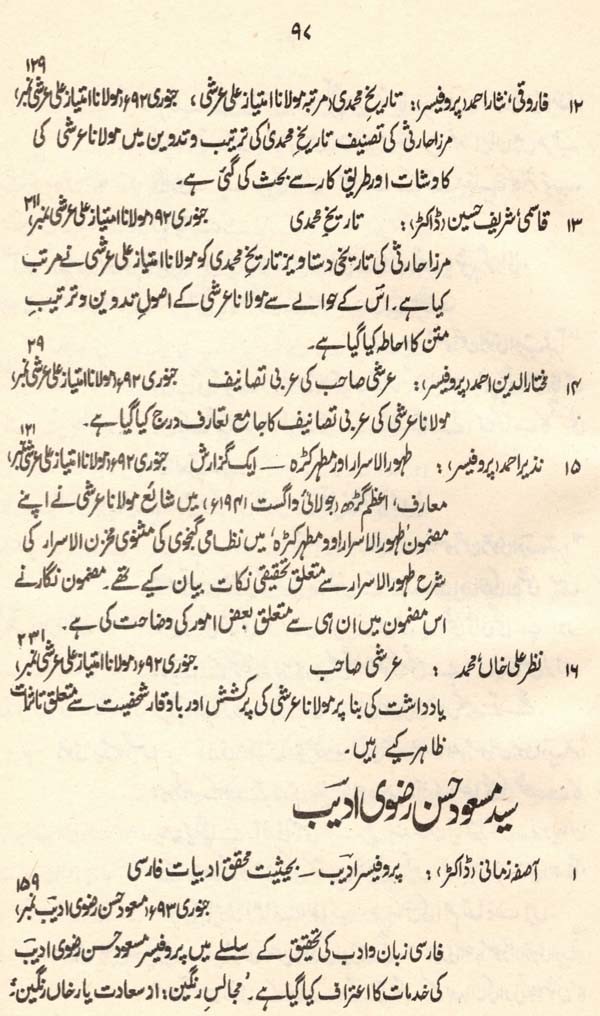 ۹۷
۱۲۹
۱۲ فاروقی، نثار احمد (پروفیسر): تاریخِ محمدی (مرتبہ مولانا امتیاز علی عرشی)، جنوری ۹۲ء (مولانا امتیاز علی عرشی نمبر)
مرزا حارثی کی تصنیف تاریخِ محمدی کی ترتیب و تدوین میں مولانا عرشی کی
کاوشات اور طریقِ کار سے بحث کی گئی ہے۔
۲۱۱
۱۳ قاسمی، شریف حسین (ڈاکٹر): تاریخِ محمدی جنوری ۹۲ء (مولانا امتیاز علی عرشی نمبر)
مرزا حارثی کی تاریخی دستاویز تاریخِ محمدی کو مولانا امتیاز علی عرشی نے مرتب
کیا ہے۔ اس کے حوالے سے مولانا عرشی کے اصولِ تدوین و ترتیبِ
متن کا احاطہ کیا گیا ہے۔
۲۹
۱۴ مختار الدین احمد (پروفیسر): عرشی صاحب کی عربی تصانیف جنوری ۶۹۲ (مولانا امتیاز علی عرشی نمبر)
مولانا عرشی کی عربی تصانیف کا جامع تعارف درج کیا گیا ہے۔
۱۲۱
۱۵ نذیر احمد (پروفیسر): ظہور الاسرار اور مطہر کڑہ — ایک گزارش جنوری ۶۹۲ (مولانا امتیاز علی عرشی نمبر)
معارف، اعظم گڑھ (جولائی و اگست ۶۱۹۴۱) میں شائع مولانا عرشی نے اپنے
مضمون 'ظہور الاسرار اور مطہر کڑہ' میں نظامی گنجوی کی مثنوی مخزن الاسرار کی
شرح ظہور الاسرار سے متعلق تحقیقی نکات بیان کیے تھے۔ مضمون نگار نے
اس مضمون میں ان ہی سے متعلق بعض امور کی وضاحت کی ہے۔
۲۳۱
۱۶ نظر علی خاں، محمد: عرشی صاحب جنوری ۶۹۲ (مولانا امتیاز علی عرشی نمبر)
یادداشت کی بنا پر مولانا عرشی کی پرکشش اور باوقار شخصیت سے متعلق تاثرات
ظاہر کیے ہیں۔
سید مسعود حسن رضوی ادیب
۱ آصفہ زمانی (ڈاکٹر): پروفیسر ادیب — بحیثیت محقق ادبیات فارسی
۱۵۹
جنوری ۶۹۳ (مسعود حسن رضوی ادیب نمبر)
فارسی زبان و ادب کی تحقیق کے سلسلے میں پروفیسر مسعود حسن رضوی ادیب
کی خدمات کا اعتراف کیا گیا ہے۔ 'مجالسِ رنگین: از سعادت یار خاں رنگین'،